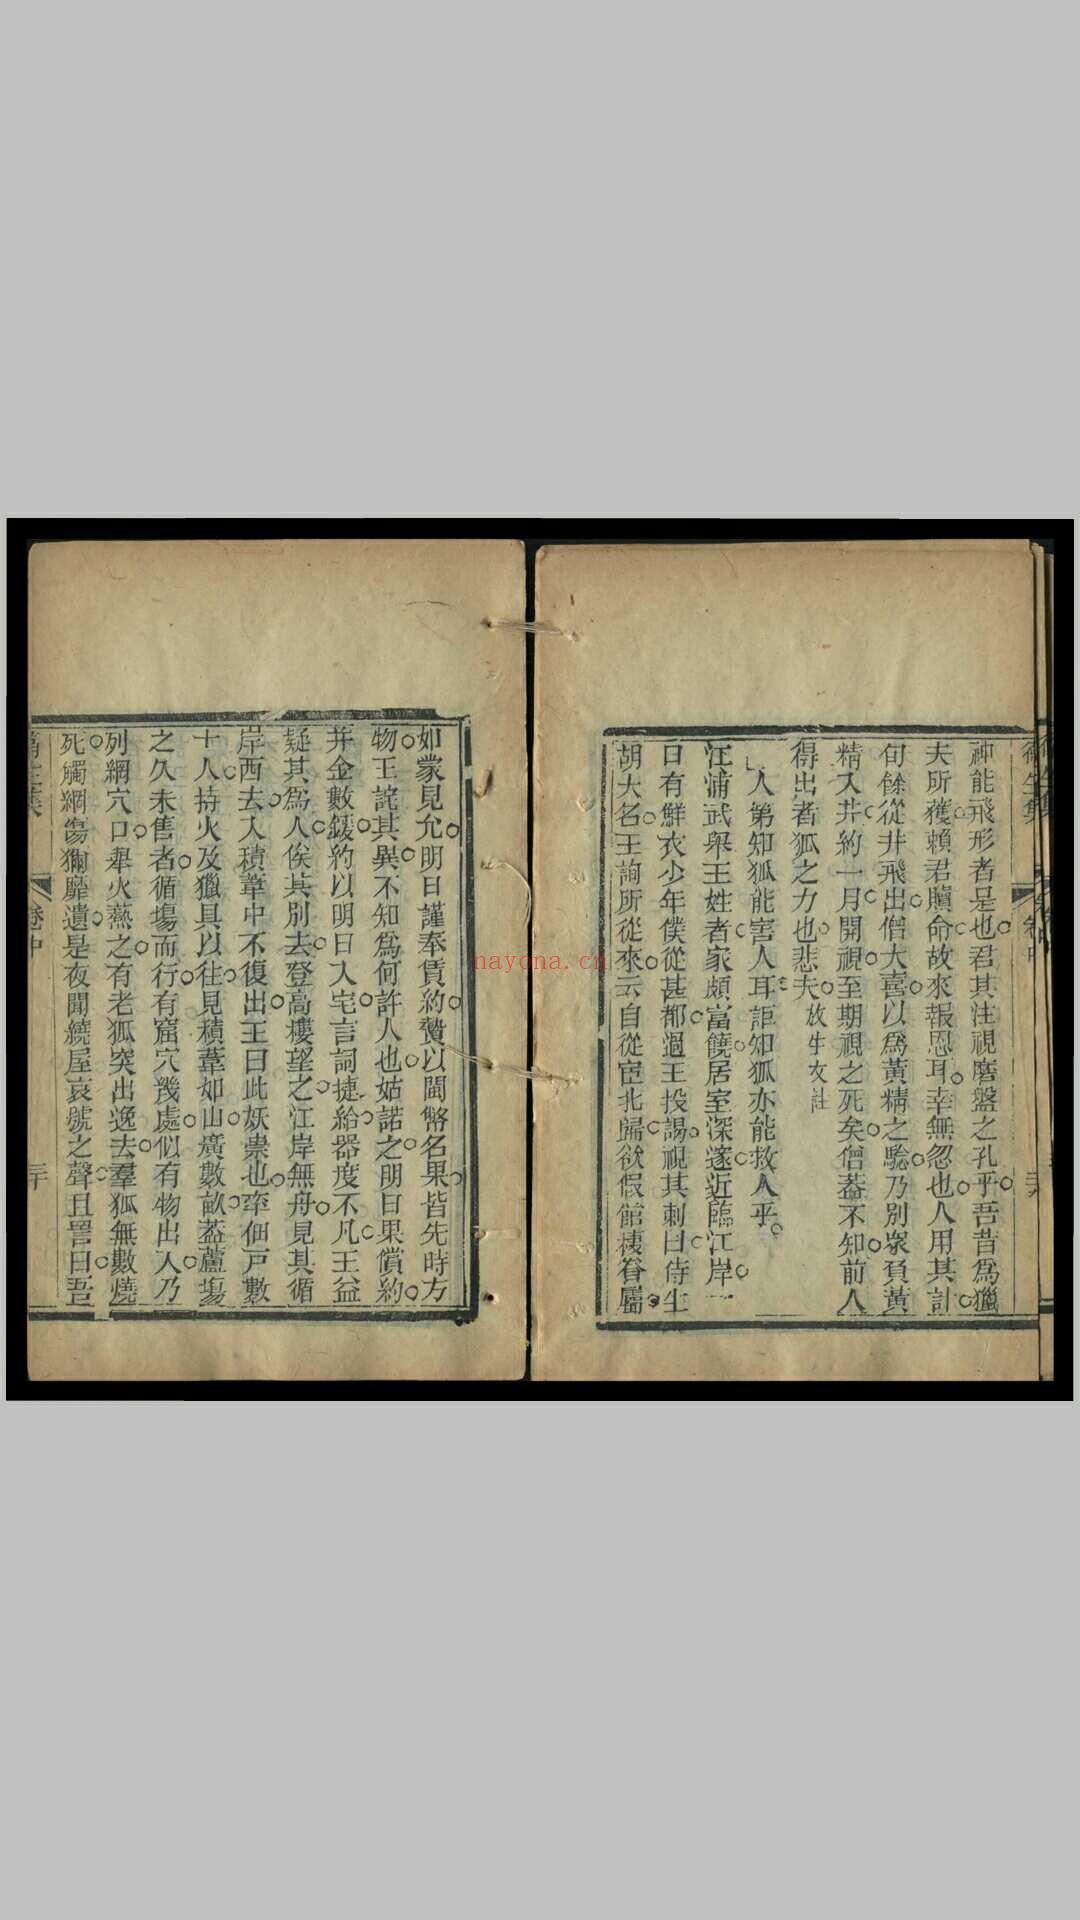 神能飛形者是也君其注視磨盤之孔乎吾昔為獵
夫所獲賴君贖命故來報恩耳幸無忽也人用其計
旬餘從井飛出僧大喜以為黃精之騐乃別衆負黃
精入井約一月開視至期視之死矣僧葢不知前人
得出者狐之力也悲夫放生文註
人第知狐能害人耳詎知狐亦能救人乎
江浦武舉王姓者家頗富饒居室深邃近臨江岸一
日有鮮衣少年僕從甚都過王投謁視其刺曰侍生
胡大名王詢所從來云自從宦北歸欲假館棲眷屬
如蒙見允明日謹奉賃約贄以閩幣名果皆先時方
物王詫其異不知為何許人也姑諾之明日果償約
并金數鍰約以明日入宅言詞捷給器度不凡王益
疑其為人俟其別去登高樓望之江岸無舟見其循
岸西去入積葦中不復出王曰此妖祟也率佃戶數
十人持火及獵具以往見積葦如山廣數畝葢蘆塲
之久未售者循塲而行有窟穴幾處似有物出入乃
列網穴口舉火燕之有老狐突出逸去羣狐無數燒
死觸網傷獼靡遺是夜聞繞屋哀號之聲且詈曰吾
卷中
nayona.cn